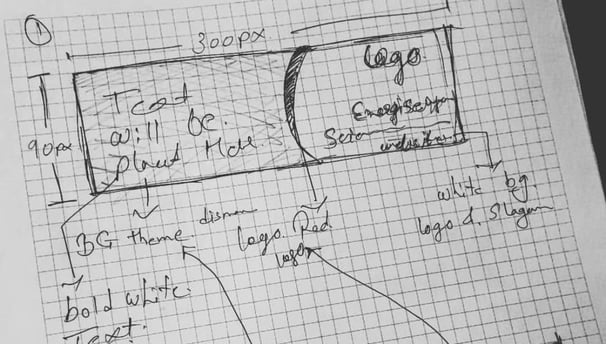 1
300px
90px
Text
will be
placed Here
logo
BG theme
logo Red
white bg.
logo & Slogan
bold white
Text.